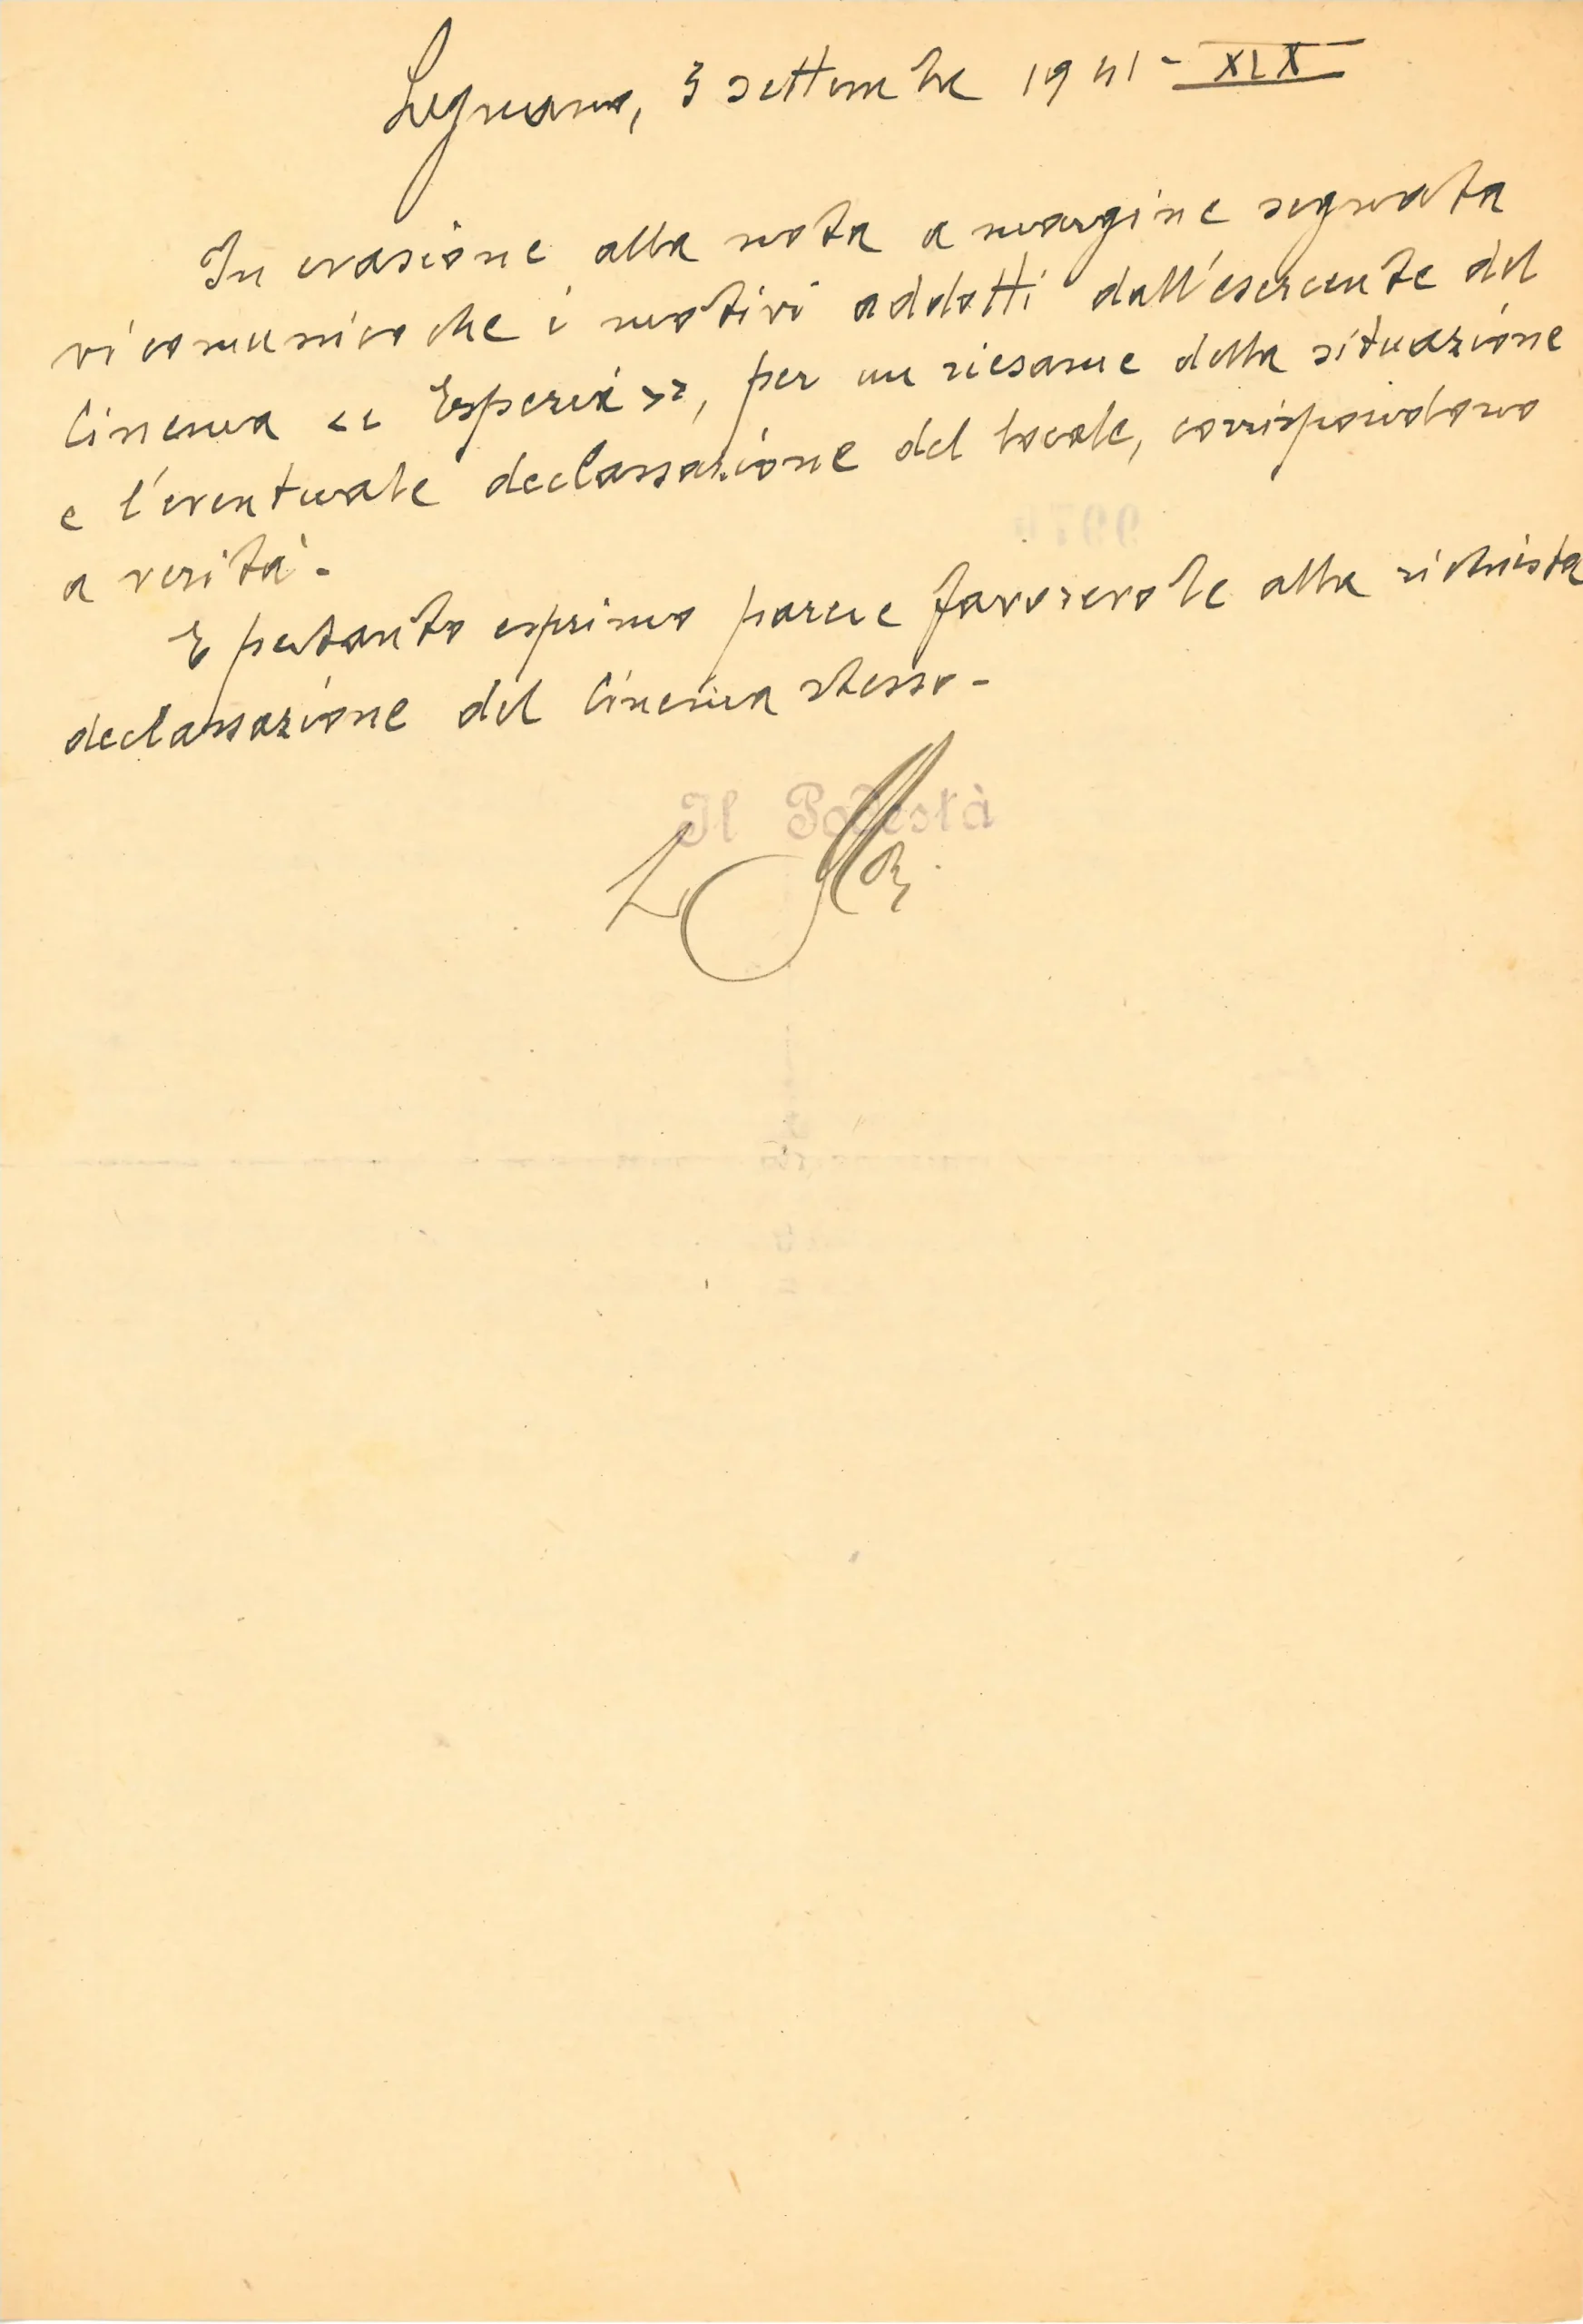 Legnano, 3 settembre 1941 - XIX
In evasione alla nota a margine segnata
vi comunico che i motivi addotti dall'esercente del
Cinema << Esperia >>, per un riesame della situazione
e l'eventuale declassazione del locale, corrispondono
a verità -
E pertanto esprimo parere favorevole alla richiesta
declassazione del Cinema stesso -
Il Podestà